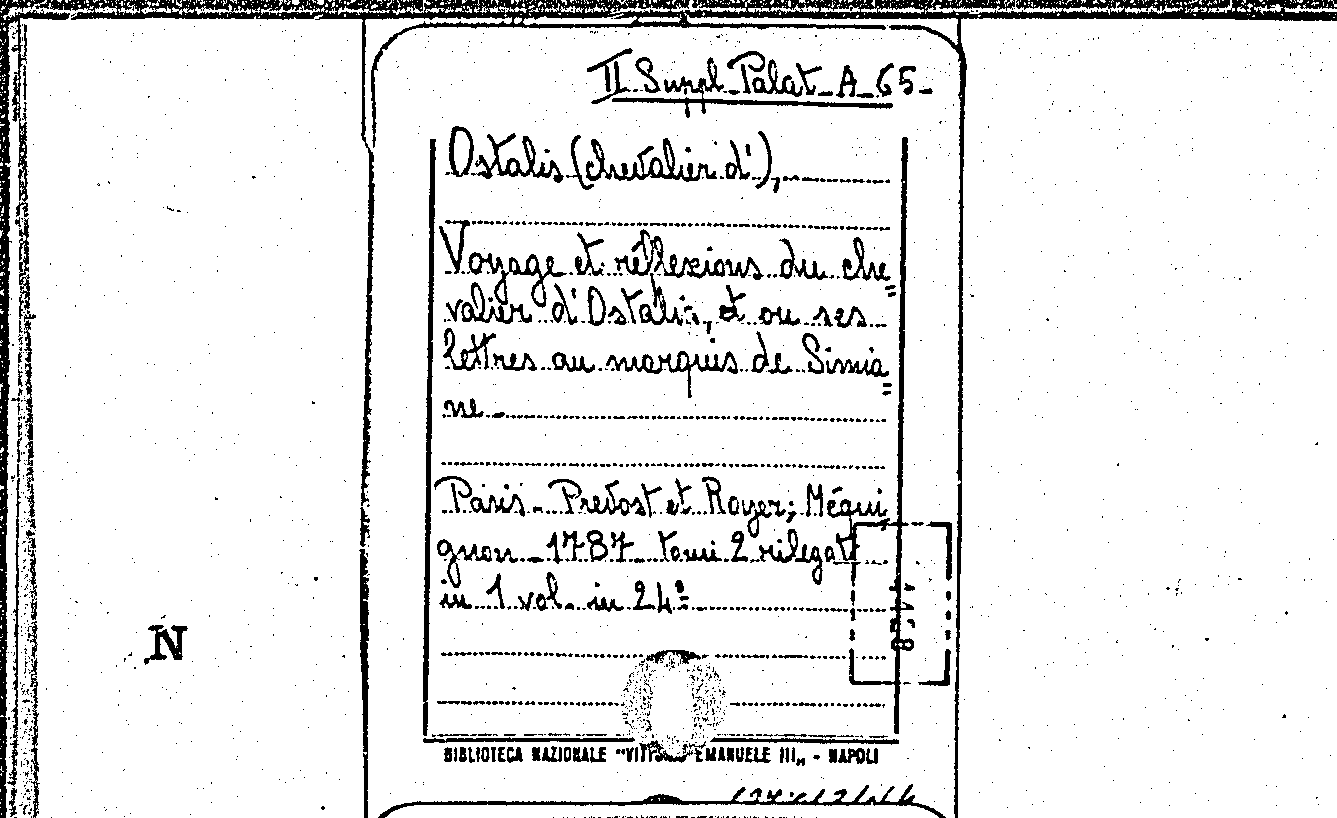 II Suppl. Palat. A 65-
Ostalis (chevalier d'),
Voyage et réflexions du che"
valier d'Ostalis, et ou ses
lettres au marquis de Simia"
ne -
Paris - Prevost et Royer; Méqui
gnon - 1787 - tomi 2 rilegati
in 1 vol. in 24º
N
BIBLIOTECA NAZIONALE "VITTORIO EMANUELE III„ - NAPOLI